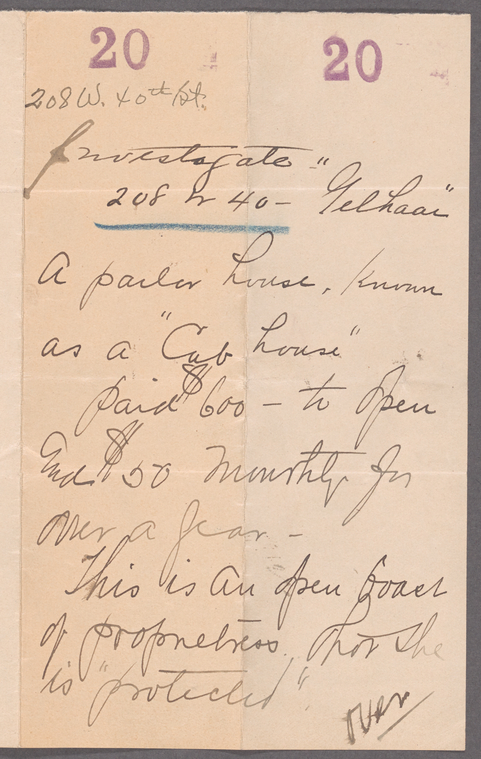 20 20
208 W. 40th St.
Investigate "
208 W 40 - Gelhaar"
A parlor house, known
as a "Cab house"
paid $600 - to open
And $50 monthly for
over a year -
This is an open boast
of proprietress, that she
is "protected"
over